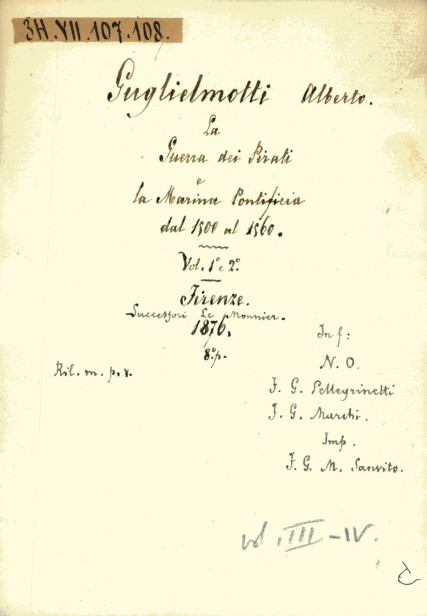 3H.VII.107.108.
Guglielmotti Alberto.
La
Guerra dei Pirati
e
la Marina Pontificia
dal 1500 al 1560.
Vol. 1º e 2º.
Firenze.
Successori Le Monnier.
1876.
8º p.
Ril. m. p. v.
In f:
N. O.
F. G. Pellegrinetti
F. G. Marchi.
Imp.
F. G. M. Sanvito.
vol. III-IV.